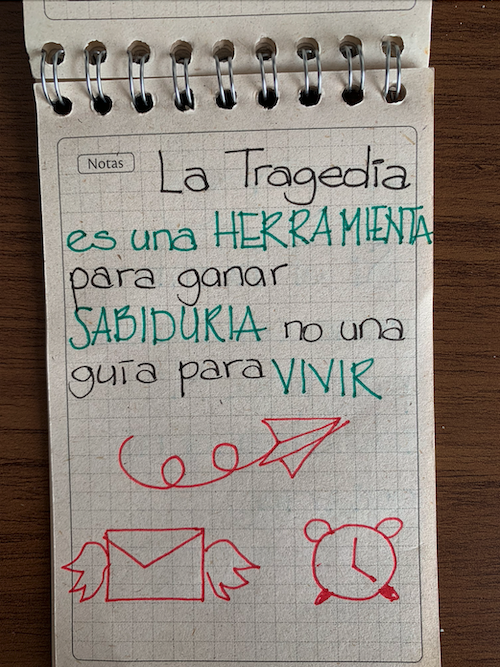 Notas
La Tragedia
es una HERRAMIENTA
para ganar
SABIDURIA no una
guía para VIVIR